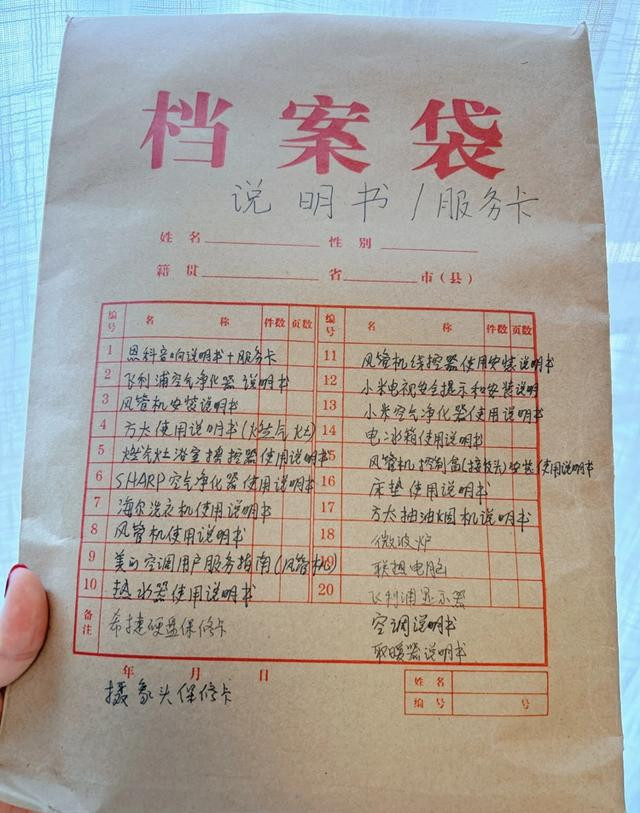 档案袋
说明书/服务卡
姓名 性别
籍贯 省 市(县)
编号 名称 件数 页数
1 恩科音响说明书+服务卡
2 飞利浦空气净化器 说明书
3 风管机安装说明书
4 方太使用说明书(燃气灶)
5 燃气灶浴室摇控器使用说明书
6 SHARP空气净化器使用说明书
7 海尔洗衣机使用说明书
8 风管机使用说明书
9 美的空调用户服务指南(风管机)
10 热水器使用说明书
编号 名称 件数 页数
11 风管机线控器使用安装说明书
12 小米电视安全提示和安装说明
13 小米空气净化器使用说明书
14 电冰箱使用说明书
15 风管机控制盒(接收头)安装使用说明书
16 床垫使用说明书
17 方太抽油烟机说明书
18 微波炉
19 联想电脑
20 飞利浦显示器
空调说明书
取暖器说明书
备注 希捷硬盘保修卡
年 月 日
摄象头保修卡
姓名
编号 号